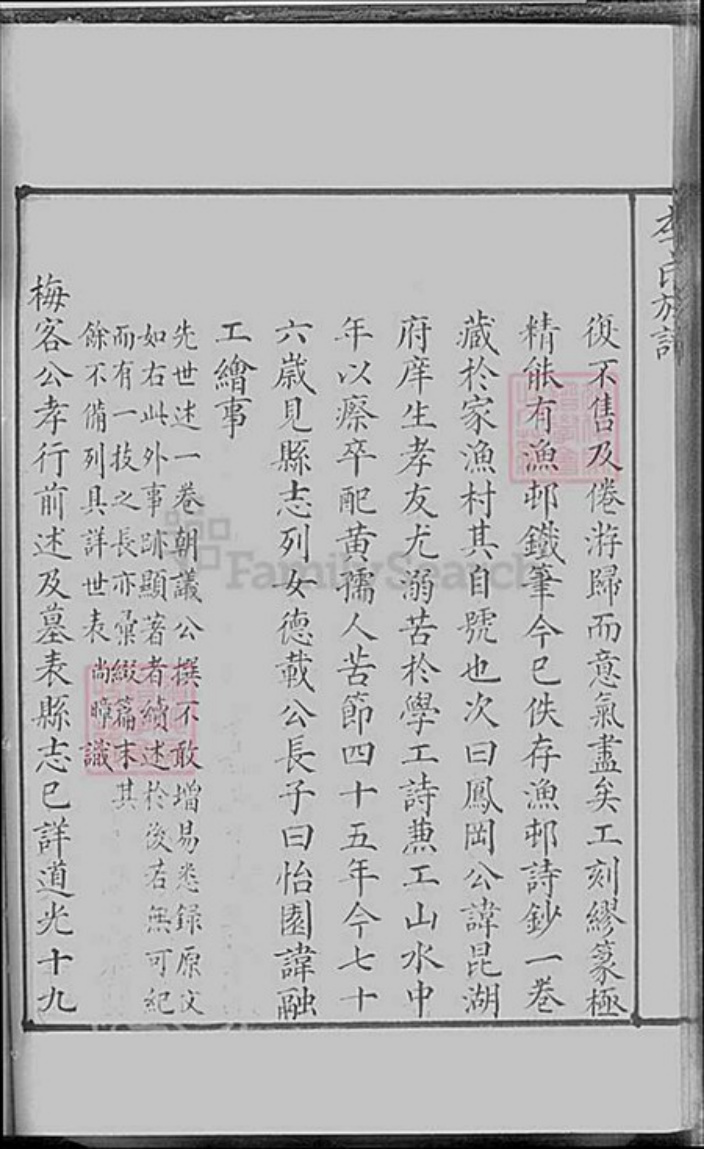 李氏族譜
復不售及倦游歸而意氣盡矣工刻繆篆極
精能有漁邨鐵筆今已佚存漁邨詩鈔一卷
藏於家漁村其自號也次曰鳳岡公諱昆湖
府庠生孝友尤溺苦於學工詩兼工山水中
年以瘵卒配黃孺人苦節四十五年今七十
六歲見縣志列女德載公長子曰怡園諱融
工繪事
先世述一卷朝議公撰不敢增易悉錄原文
如右此外事跡顯著者續述於後若無可紀
而有一技之長亦彙綴篇末其
餘不備列具詳世表尚暲識
梅客公孝行前述及墓表縣志已詳道光十九
FamilySearch